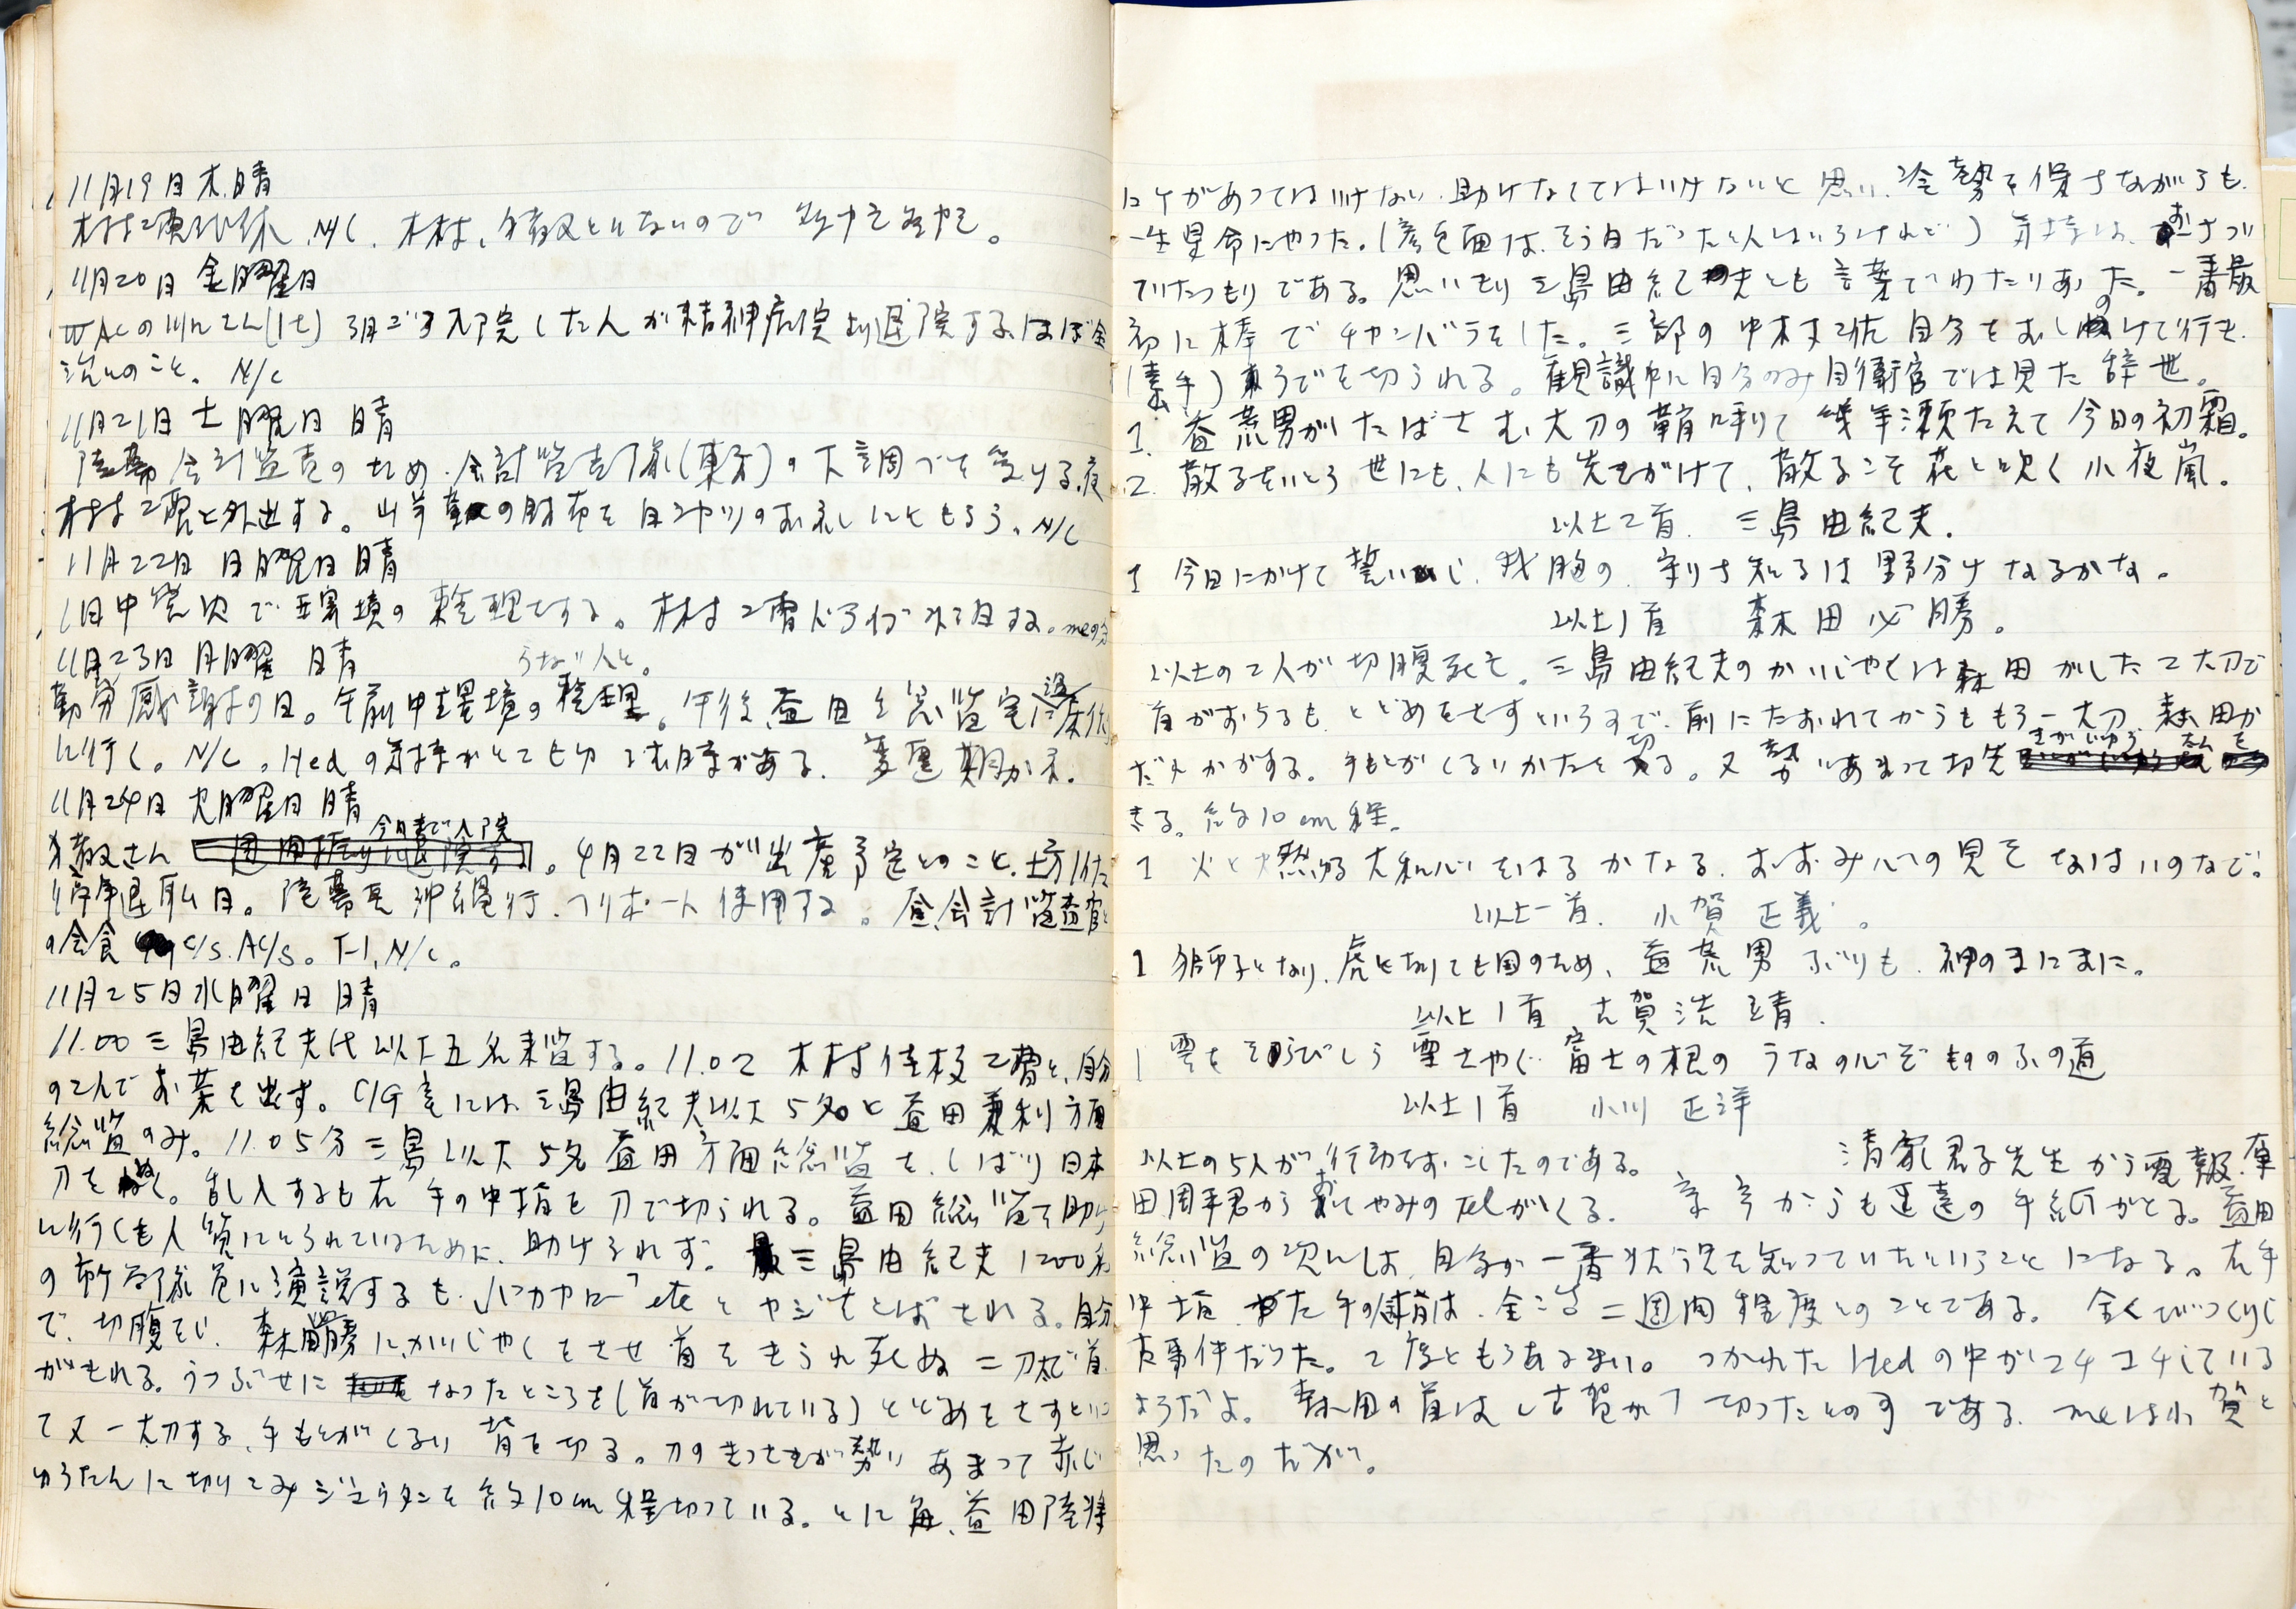 11月19日 木.晴
木村2曹代休、N/C.
11月20日 金曜日
WACの 3月ごろ入院した人が精神病院より退院する、ほぼ全
治とのこと。 N/C
11月21日 土曜日 晴
陸幕会計監査のため.会計監査隊(東方)の下調べを受ける.夜
木村2曹と外出する。山羊革の財布を のお礼にともらう. N/C
11月22日 日曜日 晴
1日中 で 環境の整理をする。木村2曹ドライブ する。
11月23日 月曜 晴
勤労感謝の日。午前中環境の整理。午後益田総監宅に
に行く。N/C。Hedの気持がとても切る時がある.変歴期かネ.
11月24日 火曜日 晴
今日まで入院
さん 。4月22日が出産予定とのこと.
停年退職日。陸幕長沖縄行.フリボート使用する。昼会計監査官と
の会食 C/S.AC/S。T-1.N/C。
11月25日水曜日 晴
11.00三島由紀夫氏以下五名来監する。11.02 木村佳枝2曹と、自分
の2人でお茶を出す。C/G室には三島由紀夫以下5名と益田兼利方面
総監のみ。11.05分三島以下5名益田方面総監を、しばり日本
刀を抜く。乱入するも右手の中指を刀で切られる。益田総監を助け
に行くも人質にとられているために、助けられず。三島由紀夫1200名
の市ヶ谷隊員に演説するも.バカヤロー etc とヤジをとばされる。自分
で、切腹をし. 森田必勝に、かいしゃくをさせ首をきられ死ぬ 二刀太で首
がもれる。うつぶせに なったところを(首が切れている)とどめをさすとい
て又一太刀する、手もとがくるい背を切る。刀のきっさきが勢いあまって赤じ
ゅうたんに切りこみジュウタンを約10cm程切っている。とに角、益田陸将
にケガがあっては いけない.助けなくてはいけないと思い、冷静を保ちながらも.
一生懸命にやった。(顔色面は、そう白だったと人はいうけれど) 気持は、おちつい
ていたつもりである。思いきり三島由紀夫とも言葉でわたりあった。一番最
初に棒でチャンバラをした。三部の中村2佐自分をおしのけて行も.
(素手)うでを切られる。観識 に自分のみ自衛官では見た辞世。
1. 益荒男がたばさむ太刀の鞘鳴りて 幾年瀬たえて今日の初霜。
2. 散るをいとう世にも、人にも先きがけて、散るこそ花と吹く小夜嵐。
以上2首. 三島由紀夫.
1 今日にかけて誓いし、我胸の、 知るは野分けなるかな。
以上1首 森田必勝。
以上の2人が切腹死を。三島由紀夫のかいじゃくは森田がした2太刀で
首がおちるも、とどめをさすというので、前にたおれてからももう一太刀、森田か
だれかがする。手もとがくるいかたを切る。又勢いあまって切先きがじゅうたんを
きる。約10cm程.
1 火と燃ゆる大和心をはるかなる.おおみ心の見そなはすのなで.
以上一首. 小賀正義。
1 獅子となり、虎となりても国のため、益荒男ぶりも.神のまにまに。
以上1首 古賀浩靖.
1 雲を らびしら雪さやぐ富士の根の うなの心ぞもののふの道
以上1首 小川正洋
以上の5人が行動をおこしたのである。 清家君子先生から電報.原
田周平君から おてやみのtelがくる. からも速達の手紙がとる。益田
総監の次には、自分が一番状況を知っていたということになる。右手
中指. 左手の は.全治二週間程度とのことである。全くびっくりし
た事件だった。2度ともうあるまい。つかれたHedの中がコチコチしている
ようだよ。森田の首は「古賀が」切ったとの事である.meは小賀と
思ったのだが。